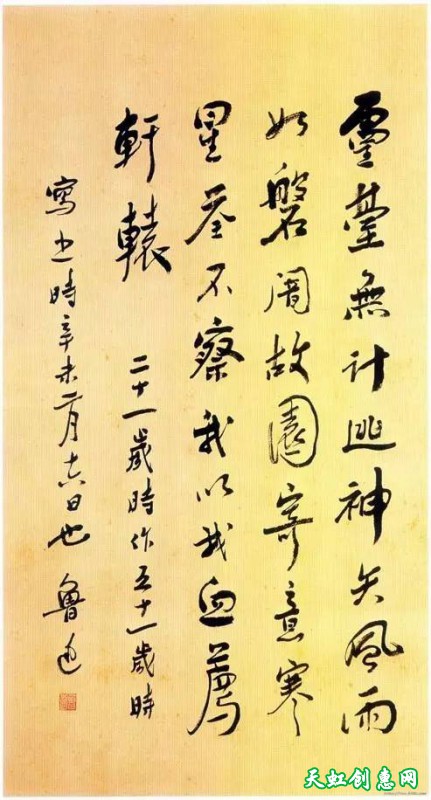 靈臺無計逃神矢風雨
如磐闇故園寄意寒
星荃不察我以我血薦
軒轅
二十一歲時作五十一歲時
寫之時辛未二月十六日也 魯迅
天虹创惠网